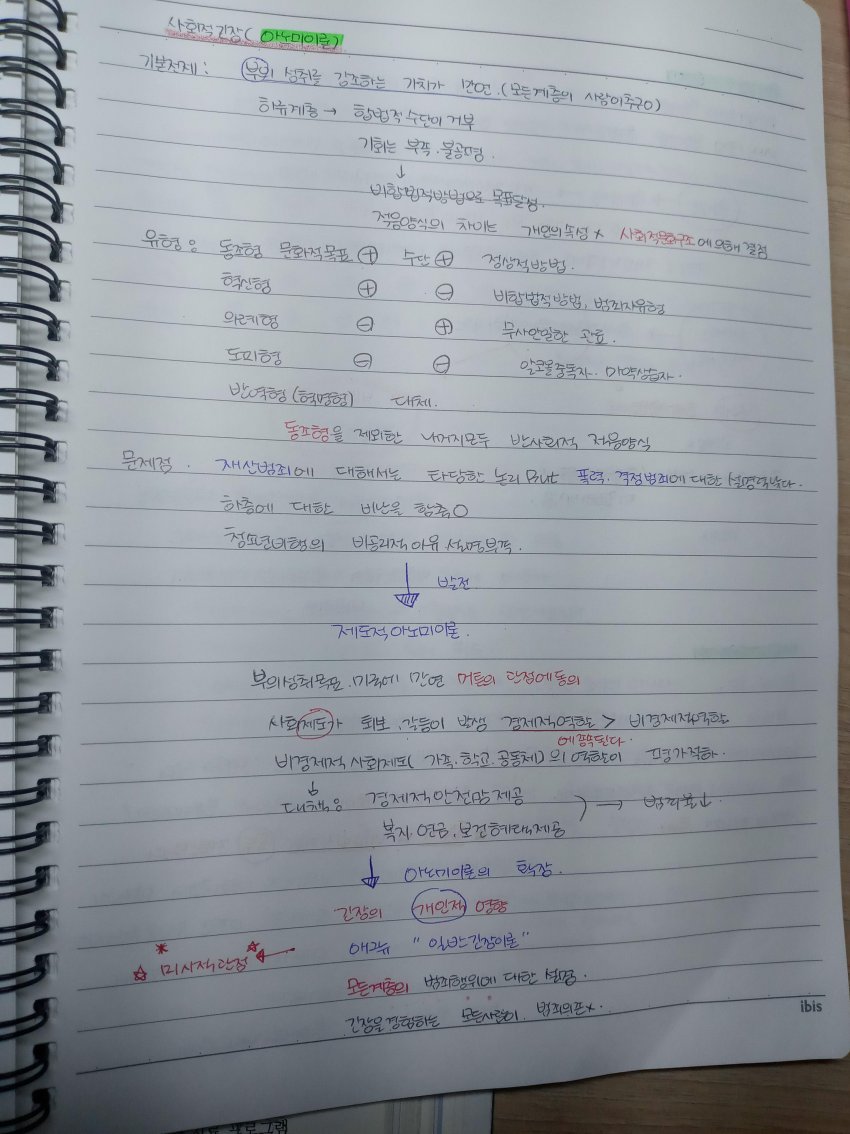 사회적긴장( 아노미이론)
기본전제 : 부의 성취를 강조하는 가치가 만연. (모든계층의 사람이추구O)
하류계층 → 합법적 수단이 거부
기회는 부족. 불공평.
↓
비합법적방법으로 목표달성.
적응양식의 차이는 개인의속성 x 사회적문화구조에의해 결정
유형 : 동조형 문화적목표 ⊕ 수단 ⊕ 정상적방법.
혁신형 ⊕ ⊖ 비합법적방법, 범죄자유형
의례형 ⊖ ⊕ 무사안일한 관료.
도피형 ⊖ ⊖ 알코올중독자. 마약상습자.
반역형(혁명형) 대체.
동조형을 제외한 나머지모두 반사회적 적응양식
문제점. 재산범죄에 대해서는 타당한 논리 But 폭력. 격정범죄에대한 설명력낮다.
하층에 대한 비난을 함축O
청소년비행의 비공리적이유 설명부족.
발전
제도적아노미이론.
부의성취목표. 미국에 만연 머튼의 관점에동의
사회제도가 퇴보. 갈등이 발생 경제적역할 > 비경제적역할
에종속된다.
비경제적 사회제도( 가족. 학교. 공동체)의 역할이 평가절하.
↓
대책: 경제적안전망제공
복지. 연금. 보건혜택제공 ) → 범죄율↓
아노미이론의 확장.
긴장의 개인적 영향
애그뉴 "일반긴장이론"
☆ 미시적관점 ☆ ←
모든계층의 범죄행위에 대한 설명.
긴장을경험하는 모든사람이. 범죄의존x.
ibis